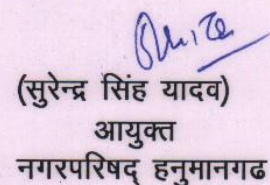 (सुरेन्द्र सिंह यादव)
आयुक्त
नगरपरिषद् हनुमानगढ